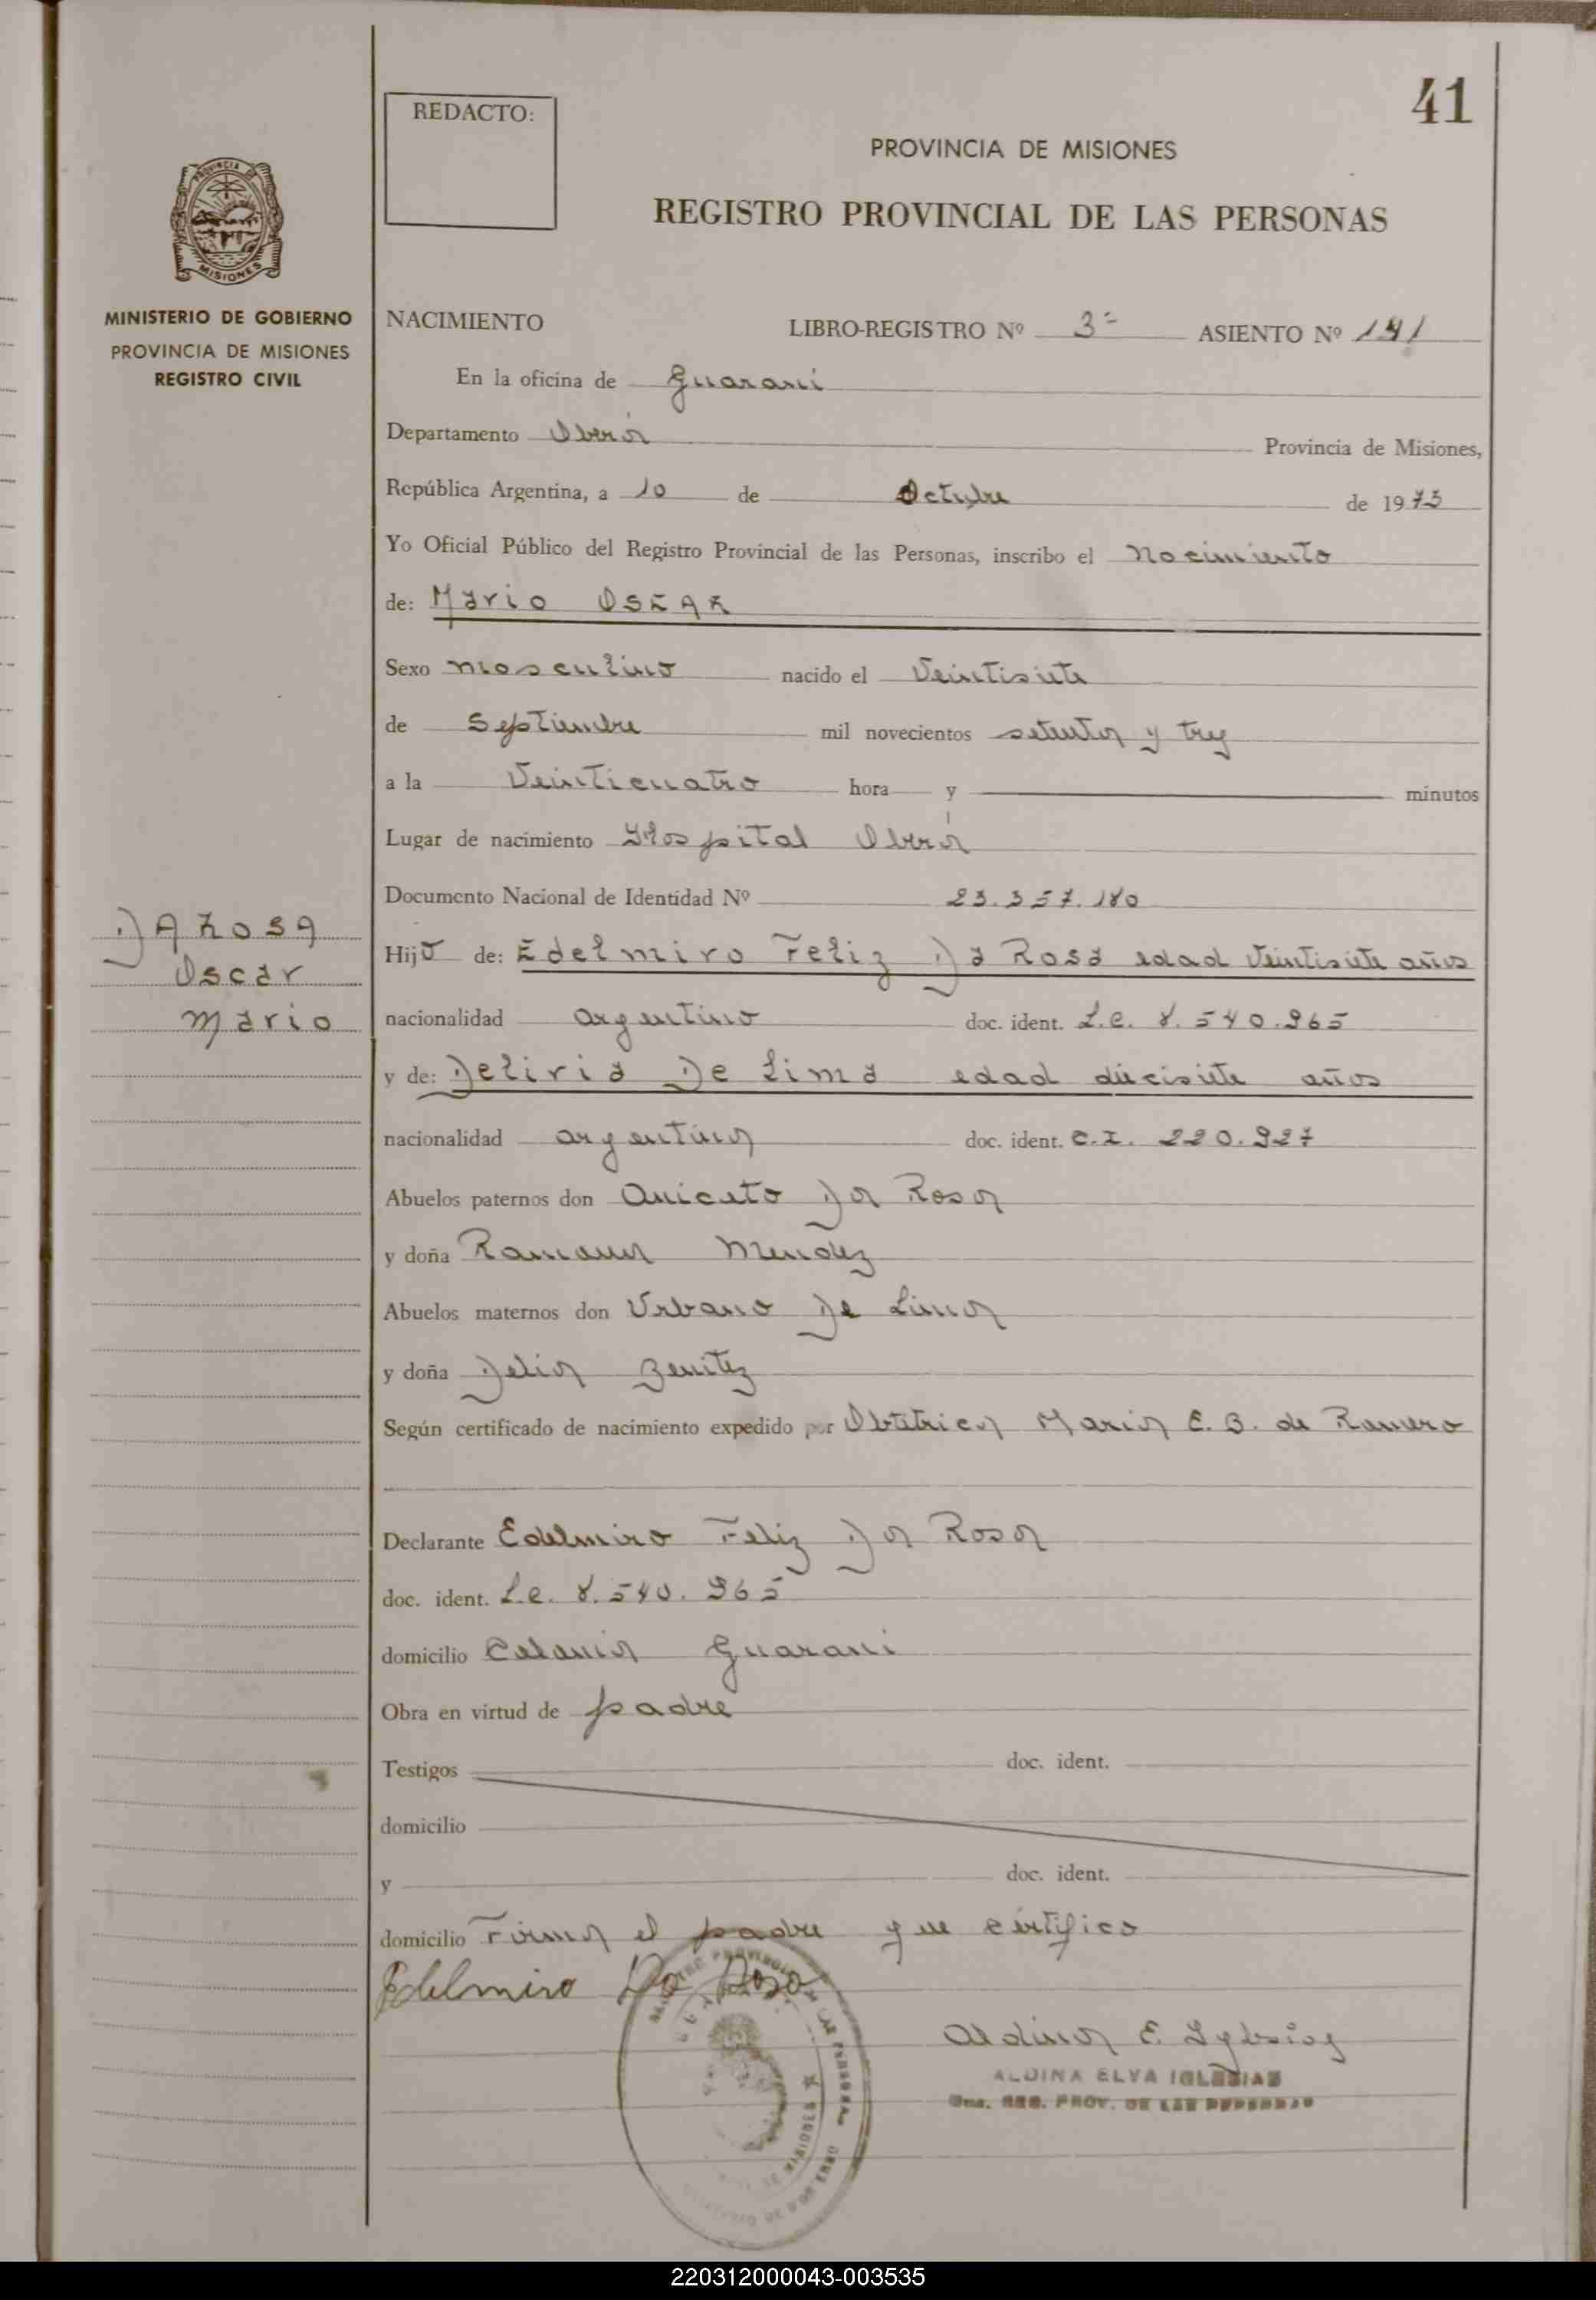 41
REDACTO:
PROVINCIA DE MISIONES
REGISTRO PROVINCIAL DE LAS PERSONAS
PROVINCIA DE
MISIONES
MINISTERIO DE GOBIERNO
PROVINCIA DE MISIONES
REGISTRO CIVIL
NACIMIENTO LIBRO-REGISTRO Nº 3º ASIENTO Nº 141
En la oficina de Guaraní
Departamento Oberá Provincia de Misiones,
República Argentina, a 10 de Octubre de 1973
Yo Oficial Público del Registro Provincial de las Personas, inscribo el nacimiento
de: Mario OSCAR
Sexo masculino nacido el Veintisiete
de Septiembre mil novecientos setenta y tres
a la Veinticuatro hora y minutos
Lugar de nacimiento Hospital Oberá
Documento Nacional de Identidad Nº 23.357.180
DA ROSA
Oscar
Mario
Hijo de: Edelmiro Feliz Da Rosa edad Veintisiete años
nacionalidad argentino doc. ident. L.E. 8.540.965
y de: Deliria De Lima edad diecisiete años
nacionalidad argentina doc. ident. C.I. 220.927
Abuelos paternos don Aniceto Da Rosa
y doña Ramona Mendez
Abuelos maternos don Urbano De Lima
y doña Delia Benitez
Según certificado de nacimiento expedido por Obtetrica Maria E. B. de Romero
Declarante Edelmiro Feliz Da Rosa
doc. ident. L.E. 8.540.965
domicilio Colonia Guaraní
Obra en virtud de padre
Testigos doc. ident.
domicilio
y doc. ident.
domicilio Firma el padre que certifico
Edelmiro Da Rosa
Aldina E. Iglesias
ALDINA ELVA IGLESIAS
REG. PROV. DE LAS PERSONAS
220312000043-003535